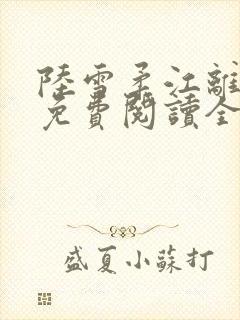 陸雪柔江離
免費閱讀全
盛夏小蘇打